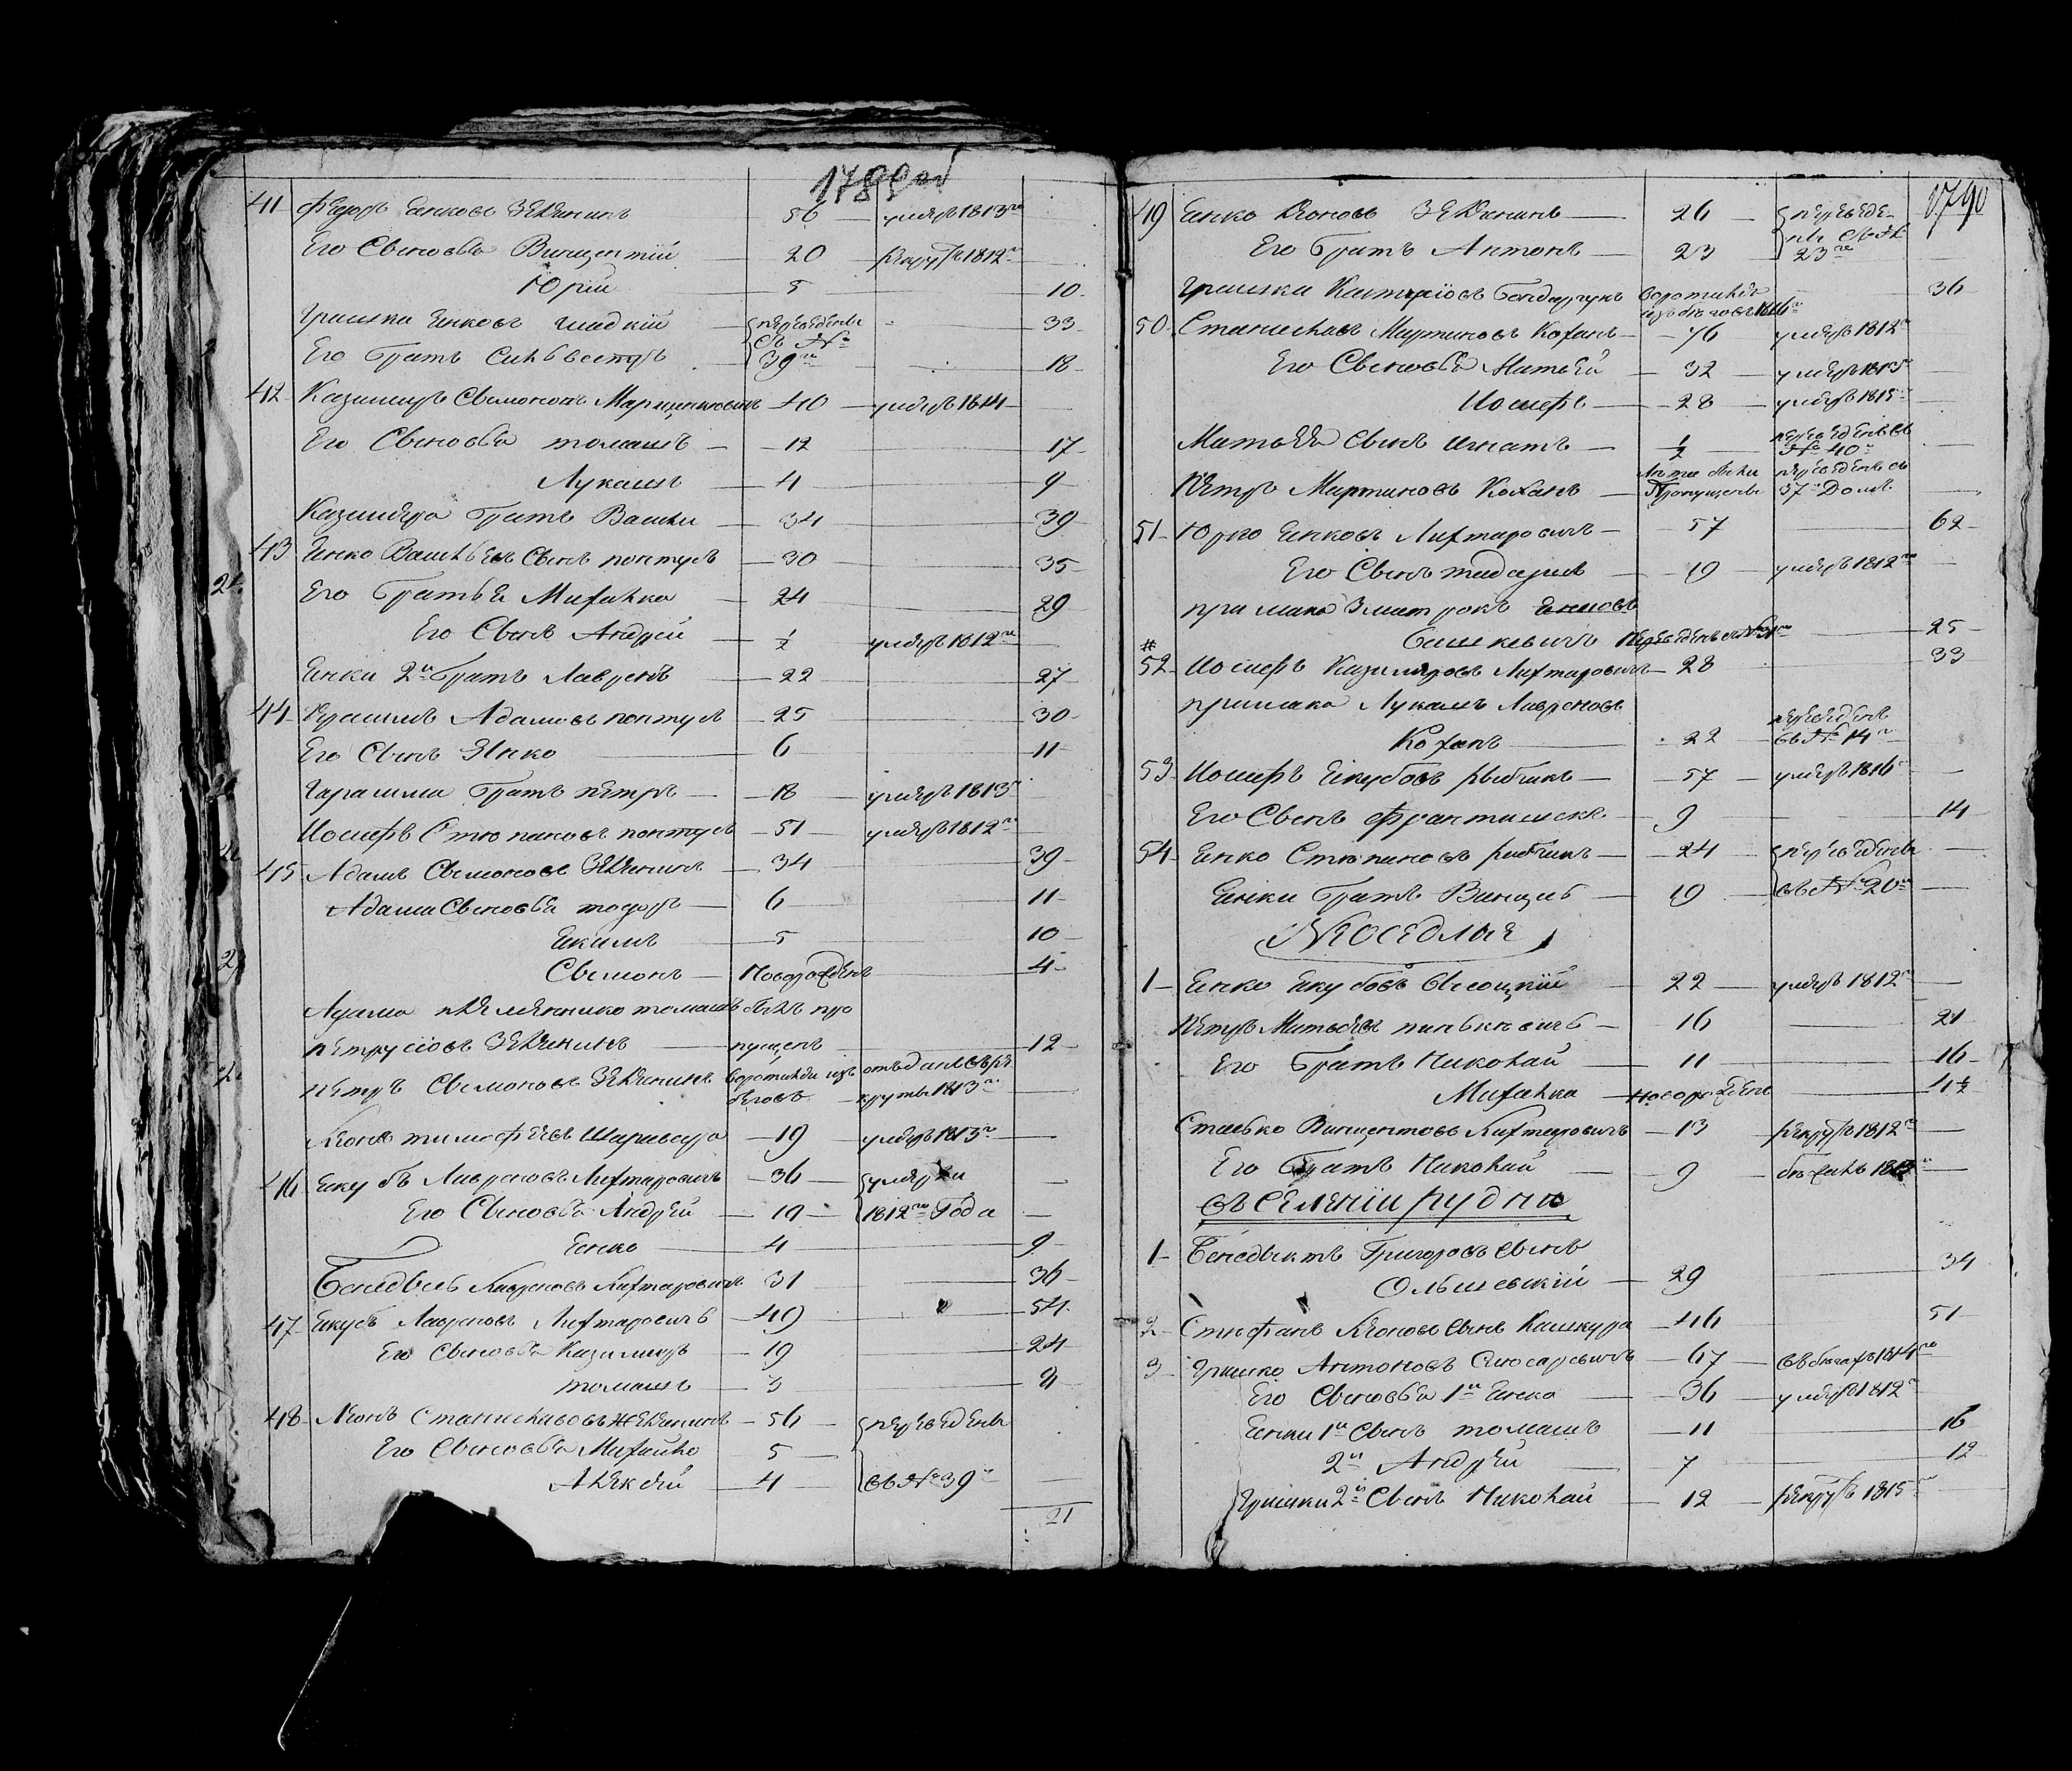 1789 об
41 Федоръ Янковъ Зеленинъ 56 умеръ 1813го
Его Сыновья Винцентій — 20 рекрутъ 1812го
Юрій 5 10
Грышка Янковъ гладкій — переведены 33
Его братъ Сильвестръ съ № 39го 18
42 Казимиръ Сымоновъ Марцинкевичъ 40 умеръ 1814
Его Сыновья томашъ — 12 17
Лукашъ — 4 9
Казимера братъ Васили — 34 39
43 Янко Васильевъ Сынъ понтусъ — 30 35
Его братья Михалко — 24 29
Его Сынъ Андрей — ½ умеръ 1812го
Янки 2й братъ Лавренъ — 22 27
44 Адамовъ понтусъ — 25 30
Его Сынъ Янко 6 11
братъ петръ — 18 умеръ 1813
Иосифъ Стюпановъ понтусъ — 51 умеръ 1812го
45 Адамъ Сымоновъ Зеленинъ — 34 39
Адама Сыновья тодоръ — 6 11
Якимъ — 5 10
Сымонъ — Новорожденъ 4
Адама племяннико томашъ былъ про
петрусіовъ Зеленинъ — пущенъ 12
петръ Сымоновъ Зеленинъ воротился изъ отъданъ въ ре
бегов круты 1813го
Леонъ тимофеевъ — 19 умеръ 1813го
46 Якубъ Лавреновъ Лихтаровичъ — 36 умерли
Его Сыновья Андрей — 19 1812го Года
Янко — 4 9
Лавреновъ Лихтаровичъ 31 36
47 Якубъ Лавреновъ Лихтаровичъ — 49 54
Его Сыновья Казимиръ — 19 24
томашъ — 3 8
48 Леонъ Станиславовъ Желенинъ — 56 переведены
Его Сыновья Михайло 5
Алексей — 4 въ № 39й
21
1790
49 Янко Леоновъ Зеленинъ — 26 переведе-
Его братъ Антонъ — 23 ны съ № 23го
Грышка Бондарчукъ воротился 36
изъ бегов 1816го
50 Станиславъ Мартиновъ Коханъ — 76 умеръ 1812го
Его Сыновья Матвей — 32 умеръ 1813
Иосифъ — 28 умеръ 1815
Матвея Сынъ Игнатъ — ½ переведенъ въ № 40й
петръ Мартиновъ Коханъ — пропущенъ переведенъ въ 37й Домъ
51 Юрко Янковъ Лихтаровичъ — 57 62
Его Сынъ — 19 умеръ 1812го
примака Змитрокъ Янковъ
переведенъ 25
52 Иосифъ Казимировъ Лихтаровичъ — 28 33
примака Лукашъ Лавреновъ
Коханъ 22 переведенъ въ № 14й
53 Иосифъ Якубовъ рыбчикъ — 57 умеръ 1816
Его Сынъ Францишекъ — 9 14
54 Янко Стюпановъ рыбчикъ — 24 переведены
Янки братъ Винцыс — 19 въ № 20й
Неоседлые
1 Янко Якубовъ Высоцкій — 22 умеръ 1812го
петръ Матвеевъ — 16 21
Его братъ Николай — 11 16
Михалка — новорожденъ 4½
Стасько Винцентовъ Лихтаровичъ — 13 рекрутъ 1812го
Его братъ Николай — 9
въ Селеніи рудни
1 Бенедыктъ Григоровъ Сынъ
Ольшевскій — 29 34
2 Стюфанъ Леоновъ Сынъ Кашкура — 46 51
3 Грышко Антоновъ Слюсаревичъ — 67 въ бегахъ 1814го
Его Сыновья 1й Янко — 36 умеръ 1812го
Янки 1й Сынъ томашъ — 11 16
2й Андрей — 7 12
Грышки 2й Сынъ Николай — 12 рекрутъ 1815го